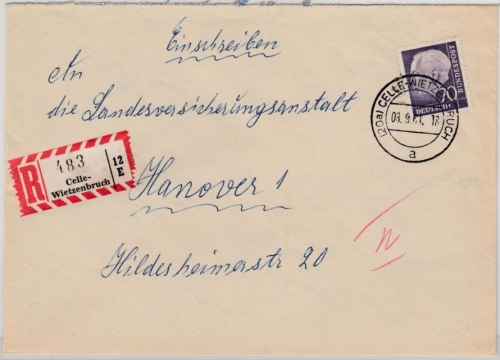 Einschreiben
An
die Landesversicherungsanstalt
Hanover 1
Hildesheimerstr 20
R
483
Celle-
Wietzenbruch
12
E
(20a) CELLE-WIETZ BRUCH
18
a
90
DEUTSCHE
BUNDESPOST